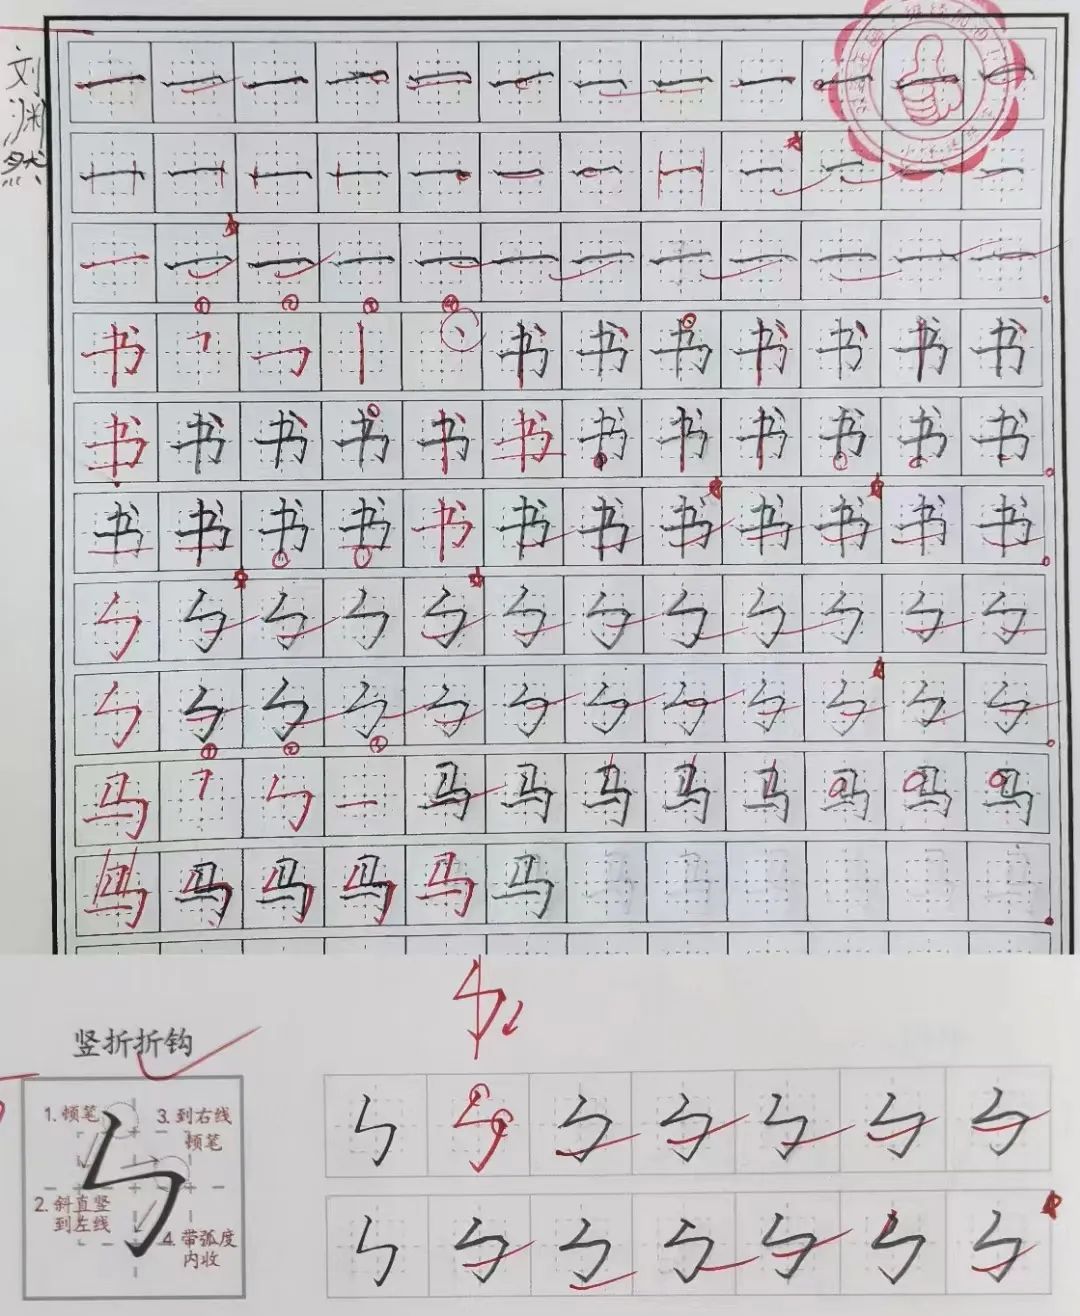 刘渊然
一 一 一 一 一 一 一 一 一 一 一 一
一 一 一 一 一 一 一 一 一 一 一 一
一 一 一 一 一 一 一 一 一 一 一 一
① ② ③ ④
书 𠃍 𠃌 丨 丶 书 书 书 书 书 书 书
书 书 书 书 书 书 书 书 书 书 书 书
书 书 书 书 书 书 书 书 书 书 书 书
㇉ ㇉ ㇉ ㇉ ㇉ ㇉ ㇉ ㇉ ㇉ ㇉ ㇉ ㇉
㇉ ㇉ ㇉ ㇉ ㇉ ㇉ ㇉ ㇉ ㇉ ㇉ ㇉ ㇉
① ② ③
马 𠃍 ㇉ 一 马 马 马 马 马 马 马 马
马 马 马 马 马 马
竖折折钩
1. 顿笔
2. 斜直竖
到左线
3. 到右线
顿笔
4. 带弧度
内收
㇉
㇉
㇉ ㇉ ㇉ ㇉ ㇉ ㇉ ㇉
㇉ ㇉ ㇉ ㇉ ㇉ ㇉ ㇉